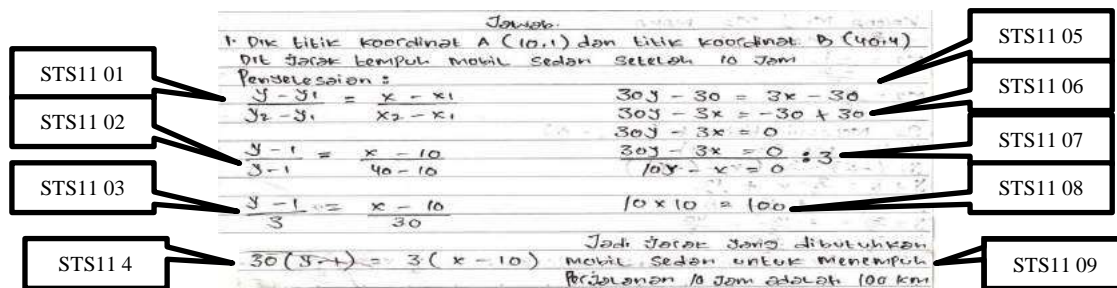 Jawab.
1. Dik titik koordinat A (10,1) dan titik koordinat B (40,4)
Dit Jarak tempuh mobil sedan setelah 10 Jam
Penyelesaian :
STS11 01
y - y1 / y2 - y1 = x - x1 / x2 - x1
STS11 02
y - 1 / y - 1 = x - 10 / 40 - 10
STS11 03
y - 1 / 3 = x - 10 / 30
STS11 4
30(y-1) = 3(x - 10)
30y - 30 = 3x - 30
STS11 05
30y - 3x = -30 + 30
STS11 06
30y - 3x = 0
30y - 3x = 0 : 3
STS11 07
10y - x = 0
10 x 10 = 100
STS11 08
Jadi Jarak yang dibutuhkan
mobil sedan untuk menempuh
Perjalanan 10 Jam adalah 100 km
STS11 09